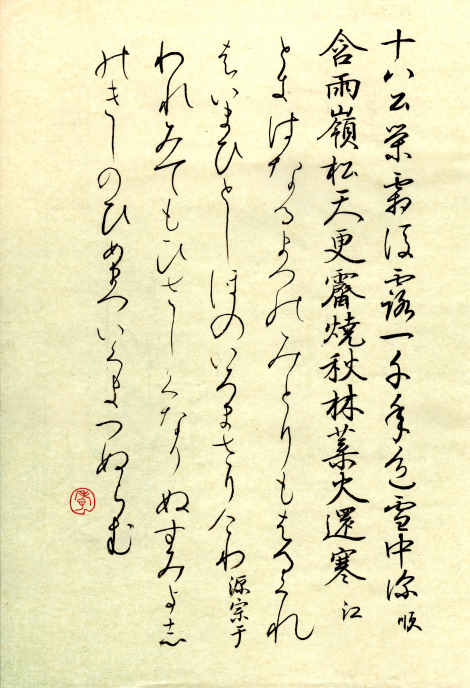 十八公榮霜後露一千年色雪中深 順
含雨嶺松天更霽燒秋林葉火還寒 江
ときはなるまつのみとりもはるくれ
はいまひとしほのいろまさりけり 源宗于
われみてもひさしくなりぬすみよし
のきしのひめまついくよへぬらむ